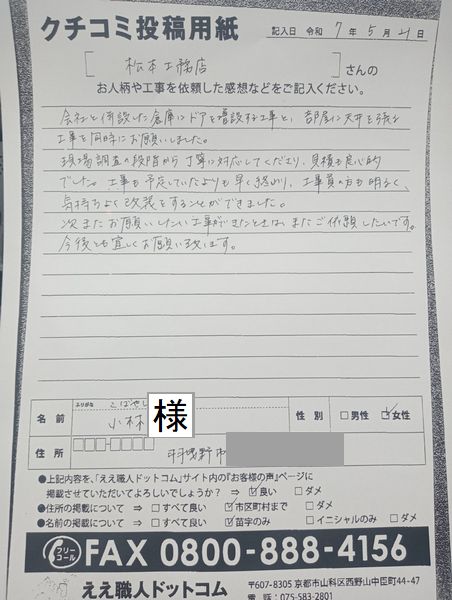 クチコミ投稿用紙
記入日 令和 7 年 5 月 21 日
[ 松本工務店 ] さんの
お人柄や工事を依頼した感想などをご記入ください。
会社と併設した倉庫にドアを増設する工事と、部屋に天井を張る
工事を同時にお願いしました。
現場調査の段階から丁寧に対応してくださり、見積も良心的
でした。工事も予定していたよりも早く終わり、工事員の方も明るく、
気持ちよく改装をすることができました。
次またお願いしたい工事ができたときは、またご依頼したいです。
今後とも宜しくお願い致します。
ふりがな こばやし
名前 小林 様 性別 □男性 ☑女性
住所 羽曳野市
●上記内容を、「ええ職人ドットコム」サイト内の『お客様の声』ページに
掲載させていただいてよろしいでしょうか? ⇒ ☑良い □ダメ
●住所の掲載について ⇒ □すべて良い ☑市区町村まで □ダメ
●名前の掲載について ⇒ □すべて良い ☑苗字のみ □イニシャルのみ □ダメ
フリーコール FAX 0800-888-4156
ええ職人ドットコム 〒607-8305 京都市山科区西野山中臣町44-47
電話:075-583-2801